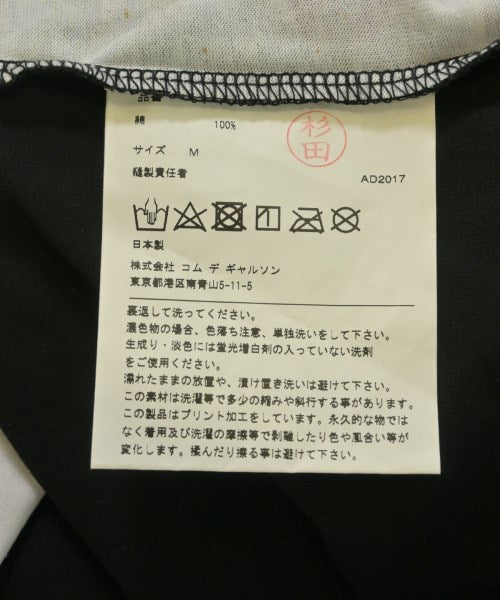 品番
綿 100%
杉田
サイズ M
縫製責任者
AD2017
日本製
株式会社 コム デ ギャルソン
東京都港区南青山5-11-5
裏返して洗ってください。
濃色物の場合、色落ち注意、単独洗いをして下さい。
生成り・淡色には蛍光増白剤の入っていない洗剤
をご使用ください。
濡れたままの放置や、漬け置き洗いは避けて下さい。
この素材は洗濯等で多少の縮みや斜行する事があります。
この製品はプリント加工をしています。永久的な物では
なく着用及び洗濯の摩擦等で剥離したり色や風合い等が
変化します。揉んだり擦る事は避けて下さい。